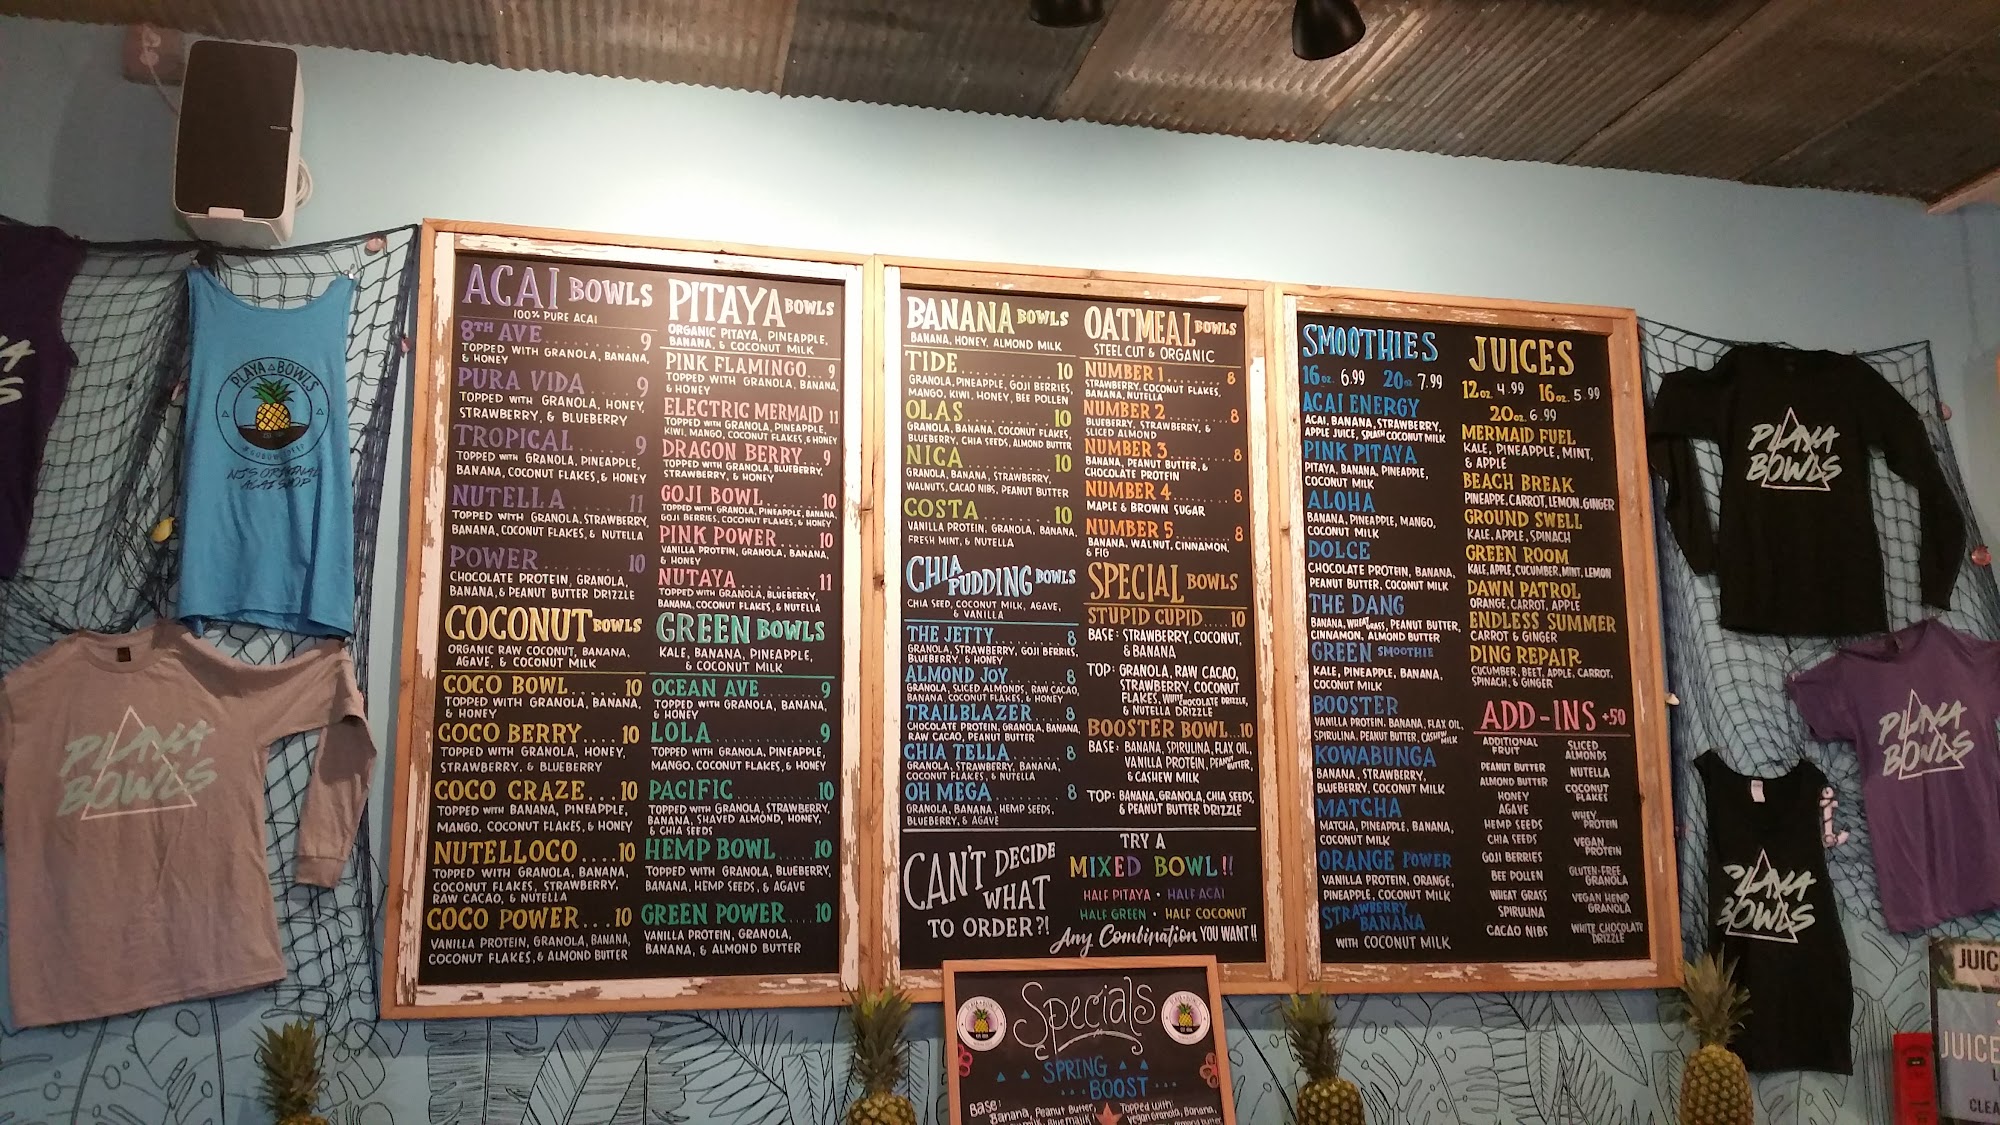 ACAI BOWLS
100% PURE ACAI
8TH AVE... 9
TOPPED WITH GRANOLA, BANANA,
& HONEY
PURA VIDA.... 9
TOPPED WITH GRANOLA, HONEY,
STRAWBERRY, & BLUEBERRY
TROPICAL...... 9
TOPPED WITH GRANOLA, PINEAPPLE,
BANANA, COCONUT FLAKES, & HONEY
NUTELLA...... 11
TOPPED WITH GRANOLA, STRAWBERRY,
BANANA, COCONUT FLAKES, & NUTELLA
POWER......... 10
CHOCOLATE PROTEIN, GRANOLA,
BANANA, & PEANUT BUTTER DRIZZLE
COCONUT BOWLS
ORGANIC RAW COCONUT, BANANA,
AGAVE, & COCONUT MILK
COCO BOWL...... 10
TOPPED WITH GRANOLA, BANANA,
& HONEY
COCO BERRY.... 10
TOPPED WITH GRANOLA, HONEY,
STRAWBERRY, & BLUEBERRY
COCO CRAZE... 10
TOPPED WITH BANANA, PINEAPPLE,
MANGO, COCONUT FLAKES, & HONEY
NUTELLOCO.... 10
TOPPED WITH GRANOLA, BANANA,
COCONUT FLAKES, STRAWBERRY,
RAW CACAO, & NUTELLA
COCO POWER.... 10
VANILLA PROTEIN, GRANOLA, BANANA,
COCONUT FLAKES, & ALMOND BUTTER
PITAYA BOWLS
ORGANIC PITAYA, PINEAPPLE,
BANANA, & COCONUT MILK
PINK FLAMINGO... 9
TOPPED WITH GRANOLA, BANANA,
& HONEY
ELECTRIC MERMAID 11
TOPPED WITH GRANOLA, PINEAPPLE,
KIWI, MANGO, COCONUT FLAKES, & HONEY
DRAGON BERRY... 9
TOPPED WITH GRANOLA, BLUEBERRY,
STRAWBERRY, & HONEY
GOJI BOWL........ 10
TOPPED WITH GRANOLA, PINEAPPLE, BANANA,
GOJI BERRIES, COCONUT FLAKES, & HONEY
PINK POWER...... 10
VANILLA PROTEIN, GRANOLA, BANANA,
& HONEY
NUTAYA.......... 11
TOPPED WITH GRANOLA, BLUEBERRY,
BANANA, COCONUT FLAKES, & NUTELLA
GREEN BOWLS
KALE, BANANA, PINEAPPLE,
& COCONUT MILK
OCEAN AVE........ 9
TOPPED WITH GRANOLA, BANANA,
& HONEY
LOLA............. 9
TOPPED WITH GRANOLA, PINEAPPLE,
MANGO, COCONUT FLAKES, & HONEY
PACIFIC.......... 10
TOPPED WITH GRANOLA, STRAWBERRY,
BANANA, SHAVED ALMOND, HONEY,
& CHIA SEEDS
HEMP BOWL..... 10
TOPPED WITH GRANOLA, BLUEBERRY,
BANANA, HEMP SEEDS, & AGAVE
GREEN POWER.... 10
VANILLA PROTEIN, GRANOLA,
BANANA, & ALMOND BUTTER
BANANA BOWLS
BANANA, HONEY, ALMOND MILK
TIDE............ 10
GRANOLA, PINEAPPLE, GOJI BERRIES,
MANGO, KIWI, HONEY, BEE POLLEN
OLAS............ 10
GRANOLA, BANANA, COCONUT FLAKES,
BLUEBERRY, CHIA SEEDS, ALMOND BUTTER
NICA............ 10
GRANOLA, BANANA, STRAWBERRY,
WALNUTS, CACAO NIBS, PEANUT BUTTER
COSTA.......... 10
VANILLA PROTEIN, GRANOLA, BANANA,
FRESH MINT, & NUTELLA
CHIA PUDDING BOWLS
CHIA SEED, COCONUT MILK, AGAVE,
& VANILLA
THE JETTY......... 8
GRANOLA, STRAWBERRY, GOJI BERRIES,
BLUEBERRY, & HONEY
ALMOND JOY....... 8
GRANOLA, SLICED ALMONDS, RAW CACAO,
BANANA, COCONUT FLAKES, & HONEY
TRAILBLAZER.... 8
CHOCOLATE PROTEIN, GRANOLA, BANANA,
RAW CACAO, PEANUT BUTTER
CHIA TELLA....... 8
GRANOLA, STRAWBERRY, BANANA,
COCONUT FLAKES, & NUTELLA
OH MEGA......... 8
GRANOLA, BANANA, HEMP SEEDS,
BLUEBERRY, & AGAVE
OATMEAL BOWLS
STEEL CUT & ORGANIC
NUMBER 1......... 8
STRAWBERRY, COCONUT FLAKES,
BANANA, NUTELLA
NUMBER 2......... 8
BLUEBERRY, STRAWBERRY, &
SLICED ALMOND
NUMBER 3......... 8
BANANA, PEANUT BUTTER, &
CHOCOLATE PROTEIN
NUMBER 4......... 8
MAPLE & BROWN SUGAR
NUMBER 5......... 8
BANANA, WALNUT, CINNAMON,
& FIG
SPECIAL BOWLS
STUPID CUPID.....10
BASE: STRAWBERRY, COCONUT,
& BANANA
TOP: GRANOLA, RAW CACAO,
STRAWBERRY, COCONUT
FLAKES, WHITE CHOCOLATE DRIZZLE,
& NUTELLA DRIZZLE
BOOSTER BOWL...10
BASE: BANANA, SPIRULINA, FLAX OIL,
VANILLA PROTEIN, PEANUT BUTTER,
& CASHEW MILK
TOP: BANANA, GRANOLA, CHIA SEEDS,
& PEANUT BUTTER DRIZZLE
CAN'T DECIDE
WHAT
TO ORDER?!
TRY A
MIXED BOWL!!
HALF PITAYA • HALF ACAI
HALF GREEN • HALF COCONUT
Any Combination YOU WANT!!
SMOOTHIES
16 OZ. 6.99 20 OZ 7.99
ACAI ENERGY
ACAI, BANANA, STRAWBERRY,
APPLE JUICE, SPLASH COCONUT MILK
PINK PITAYA
PITAYA, BANANA, PINEAPPLE,
COCONUT MILK
ALOHA
BANANA, PINEAPPLE, MANGO,
COCONUT MILK
DOLCE
CHOCOLATE PROTEIN, BANANA,
PEANUT BUTTER, COCONUT MILK
THE DANG
BANANA, WHEATGRASS, PEANUT BUTTER,
CINNAMON, ALMOND BUTTER
GREEN SMOOTHIE
KALE, PINEAPPLE, BANANA,
COCONUT MILK
BOOSTER
VANILLA PROTEIN, BANANA, FLAX OIL,
SPIRULINA, PEANUT BUTTER, CASHEW MILK
KOWABUNGA
BANANA, STRAWBERRY,
BLUEBERRY, COCONUT MILK
MATCHA
MATCHA, PINEAPPLE, BANANA,
COCONUT MILK
ORANGE POWER
VANILLA PROTEIN, ORANGE,
PINEAPPLE, COCONUT MILK
STRAWBERRY
BANANA
WITH COCONUT MILK
JUICES
12 OZ. 4.99 16 OZ. 5.99
20 OZ. 6.99
MERMAID FUEL
KALE, PINEAPPLE, MINT,
& APPLE
BEACH BREAK
PINEAPPE, CARROT, LEMON, GINGER
GROUND SWELL
KALE, APPLE, SPINACH
GREEN ROOM
KALE, APPLE, CUCUMBER, MINT, LEMON
DAWN PATROL
ORANGE, CARROT, APPLE
ENDLESS SUMMER
CARROT & GINGER
DING REPAIR
CUCUMBER, BEET, APPLE, CARROT,
SPINACH, & GINGER
ADD-INS +50
ADDTIONAL
FRUIT
PEANUT BUTTER
ALMOND BUTTER
HONEY
AGAVE
HEMP SEEDS
CHIA SEEDS
GOJI BERRIES
BEE POLLEN
WHEAT GRASS
SPIRULINA
CACAO NIBS
SLICED
ALMONDS
NUTELLA
COCONUT
FLAKES
WHEY
PROTEIN
VEGAN
PROTEIN
GLUTEN-FREE
GRANOLA
VEGAN HEMP
GRANOLA
WHITE CHOCOLATE
DRIZZLE
Specials
SPRING
BOOST
Base:
Banana, Peanut Butter,
Topped with:
Vegan Granola, Banana,
PLAYA BOWLS
NJ'S ORIGINAL
ACAI SHOP
PLAYA
BOWLS
PLAYA
BOWLS
PLAYA
BOWLS
PLAYA
BOWLS
JUIC
JUICE
CLEA